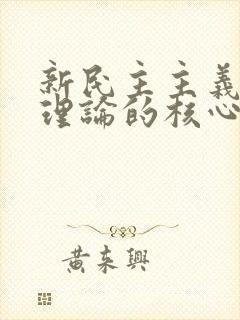 新民主主義
理論的核心
黃来興